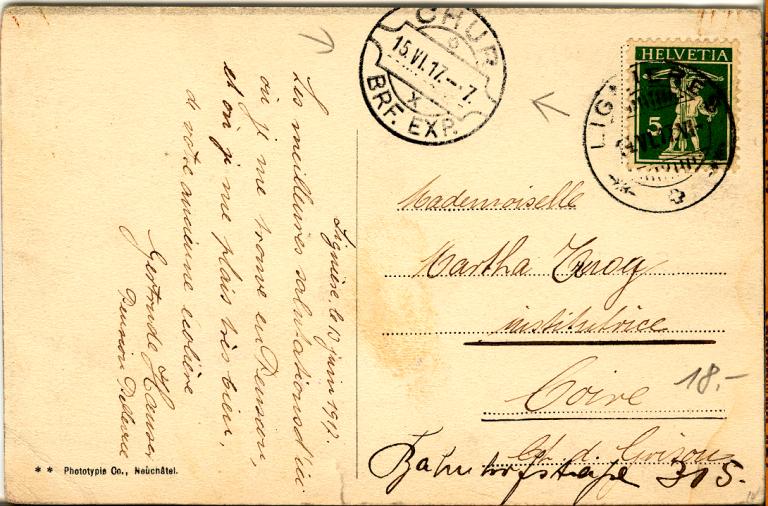 Lignière, le 13 juin 1917.
Les meilleures salutations d'ici
où je me trouve en Pension,
et où je me plais très bien,
d votre ancienne écolière
Gertrude Hauser
Pension
** Phototypie Co., Neuchâtel.
CHUR
15.VI.17.-7.
BRF. EXP.
HELVETIA
5
Mademoiselle
Martha
institutrice
Coire
18.-
Ct. d. Grisons
Bahnhofstraße 315.